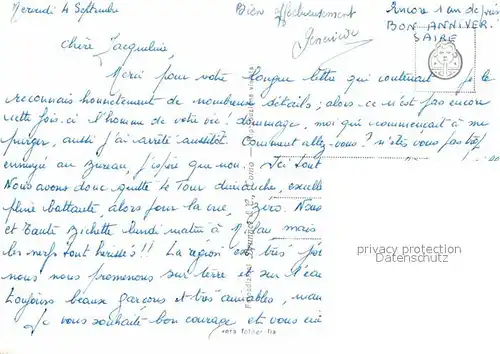 Mercredi 4 Septembre
Bien affectueusement
Geneviève
Encore 1 an de pris
BON ANNIVER-
SAIRE
chère Jacqueline,
Merci pour votre longue lettre qui contenait je le
reconnais honnêtement de nombreux détails; alors ce n'est pas encore
cette fois-ci l'homme de votre vie! dommage, moi qui commençait à me
purger, aussi j'ai arrêté aussitôt. Comment allez-vous? n'êtes vous pas trop
ennuyé au bureau, j'espère que non. Ici tout
Nous avons donc quitté le Tour dimanche,
pluie battante, alors pour la vue, zéro. Nous
et Tante Bichette lundi matin à Milau mais
les nerfs tout hérissés!! La région est très
nous nous promenons sur terre et sur l'eau
Toujours beaux garçons et très aimables,
Je vous souhaite bon courage et vous
privacy protection
Datenschutz